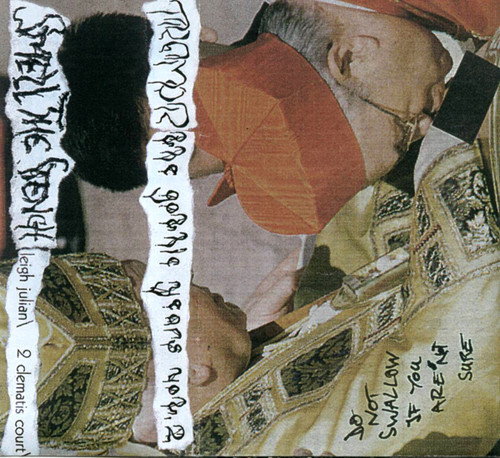 the gothic years vol.2
SMELL THE STENCH
leigh julian\ 2 clematis court\
DO
NOT
SWALLOW
IF YOU
ARE NOT
SURE